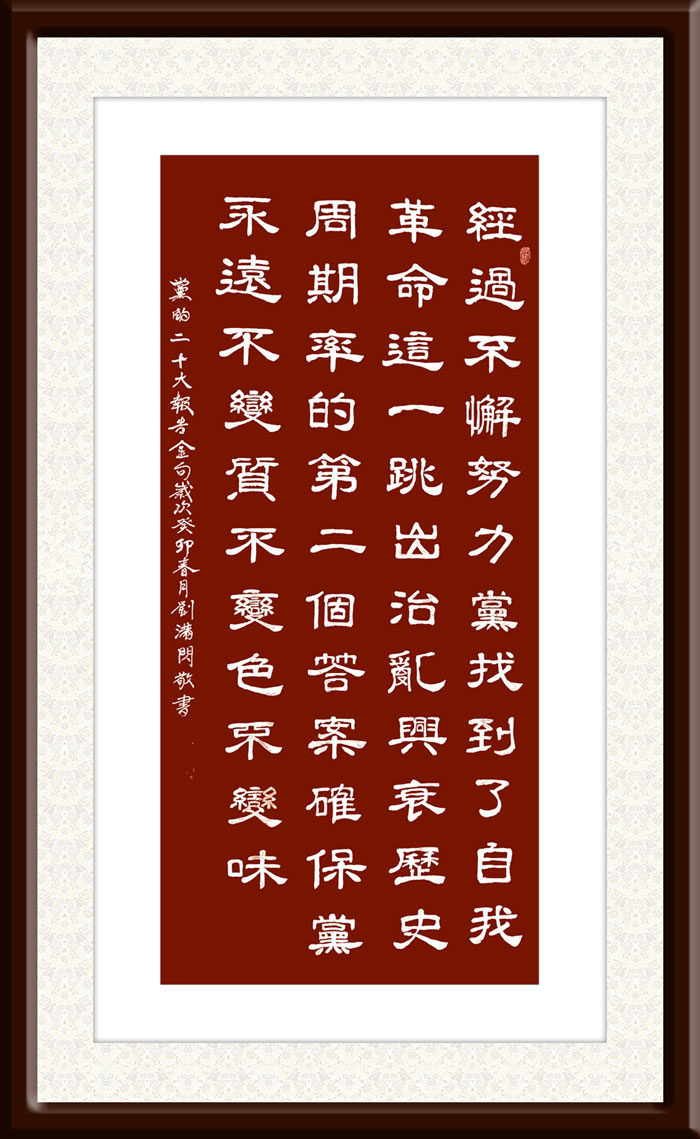 經過不懈努力黨找到了自我
革命這一跳出治亂興衰歷史
周期率的第二個答案確保黨
永遠不變質不變色不變味
黨的二十大報告金句歲次癸卯春月劉滿閃敬書